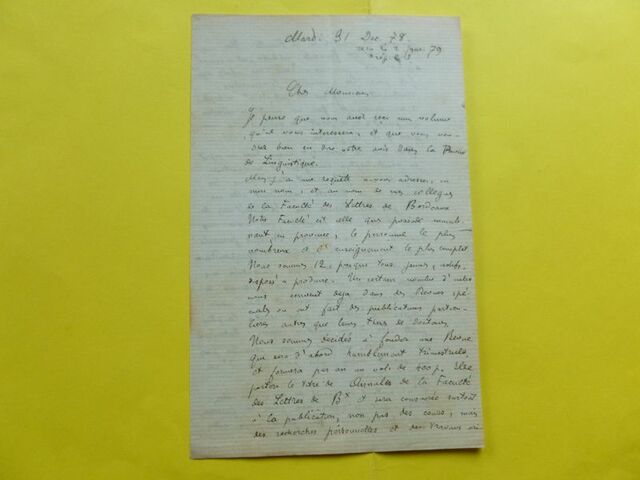 Mardi 31 Dec. 78.
reçu le 2 janv. 79
rép. le 3
Cher Monsieur
Je pense que vous avez reçu mon volume
qu'il vous intéressera, et que vous vou-
drez bien en dire votre avis dans la Revue
de Linguistique.
Mais j'ai une requête à vous adresser, en
mon nom, et au nom de mes collègues
de la Faculté des Lettres de Bordeaux.
Notre Faculté est celle qui possède mainte-
nant, en province, le personnel le plus
nombreux et l'enseignement le plus complet.
Nous sommes 12, presque tous jeunes, actifs,
disposés à produire. Un certain nombre d'entre
nous écrivent déjà dans des Revues spé-
ciales ou ont fait des publications particu-
lières autres que leurs thèses de doctorat.
Nous sommes décidés à fonder une Revue
qui sera d'abord humblement trimestrielle,
et formera par an un vol. de 400 p. Elle
portera le titre de Annales de la Faculté
des Lettres de Bx et sera consacrée surtout
à la publication, non pas des cours, mais
des recherches personnelles et des travaux où